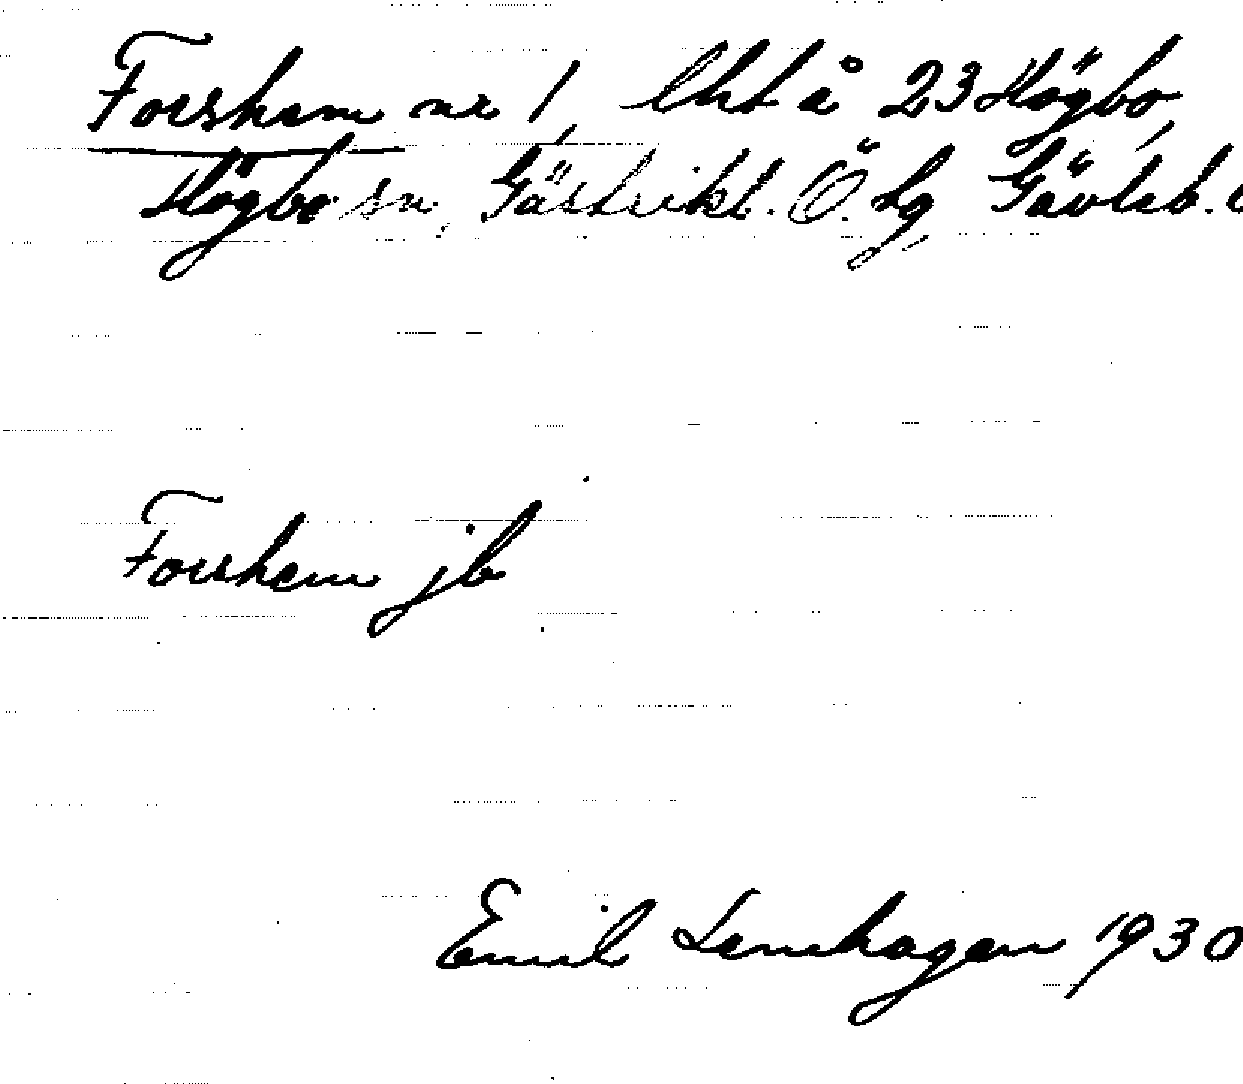 Forshem nr 1, lht å 23 Högbo,
Högbo sn, Gästrikl. Ö. hg, Gävleb.
Forshem jb
Emil Lenhagen 1930